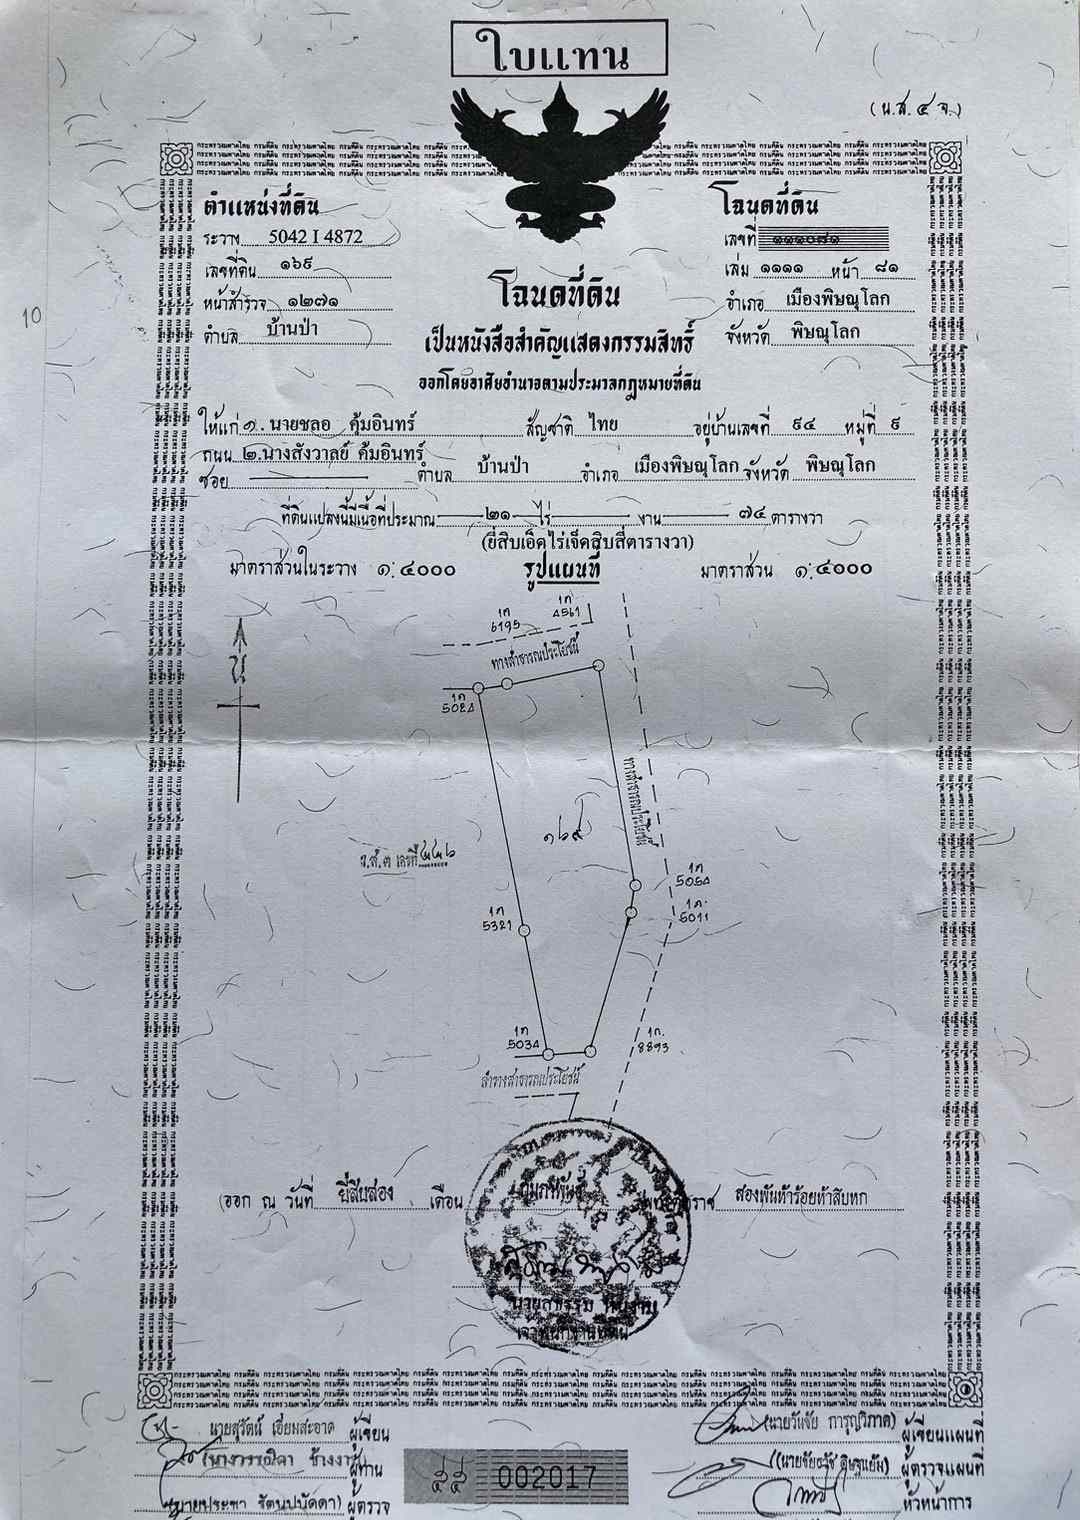 ใบแทน
(น.ส.๔ จ.)
ตำแหน่งที่ดิน
ระวาง 5042 I 4872
เลขที่ดิน ๑๖๙
หน้าสำรวจ ๑๒๗๑
ตำบล บ้านป่า
โฉนดที่ดิน
เลขที่ ๑๑๑๐๘๑
เล่ม ๑๑๑๑ หน้า ๘๑
อำเภอ เมืองพิษณุโลก
จังหวัด พิษณุโลก
โฉนดที่ดิน
เป็นหนังสือสำคัญแสดงกรรมสิทธิ์
ออกโดยอาศัยอำนาจตามประมวลกฎหมายที่ดิน
ให้แก่ ๑. นายชลอ คุ้มอินทร์ สัญชาติ ไทย อยู่บ้านเลขที่ ๙๔ หมู่ที่ ๙
ถนน ๒.นางสังวาลย์ คุ้มอินทร์
ซอย ตำบล บ้านป่า อำเภอ เมืองพิษณุโลก จังหวัด พิษณุโลก
ที่ดินแปลงนี้มีเนื้อที่ประมาณ ๒๑ ไร่ งาน ๗๔ ตารางวา
(ยี่สิบเอ็ดไร่เจ็ดสิบสี่ตารางวา)
มาตราส่วนในระวาง ๑:๔๐๐๐ รูปแผนที่ มาตราส่วน ๑:๔๐๐๐
น
6195
4561
ทางสาธารณประโยชน์
5024
ทางสาธารณประโยชน์
๑๖๙
5054
5011
5321
5034
8893
ลำรางสาธารณประโยชน์
(ออก ณ วันที่ ยี่สิบสอง เดือน กุมภาพันธ์ พุทธศักราช สองพันห้าร้อยห้าสิบหก
เจ้าพนักงานที่ดิน
นายสุรัตน์ เอี่ยมสะอาด ผู้เขียน
ผู้ทาน
(นายประชา รัตนปนัดดา) ผู้ตรวจ
๕๕ 002017
(นายวันชัย การุญวิภาค) ผู้เขียนแผนที่
ผู้ตรวจแผนที่
หัวหน้าการ